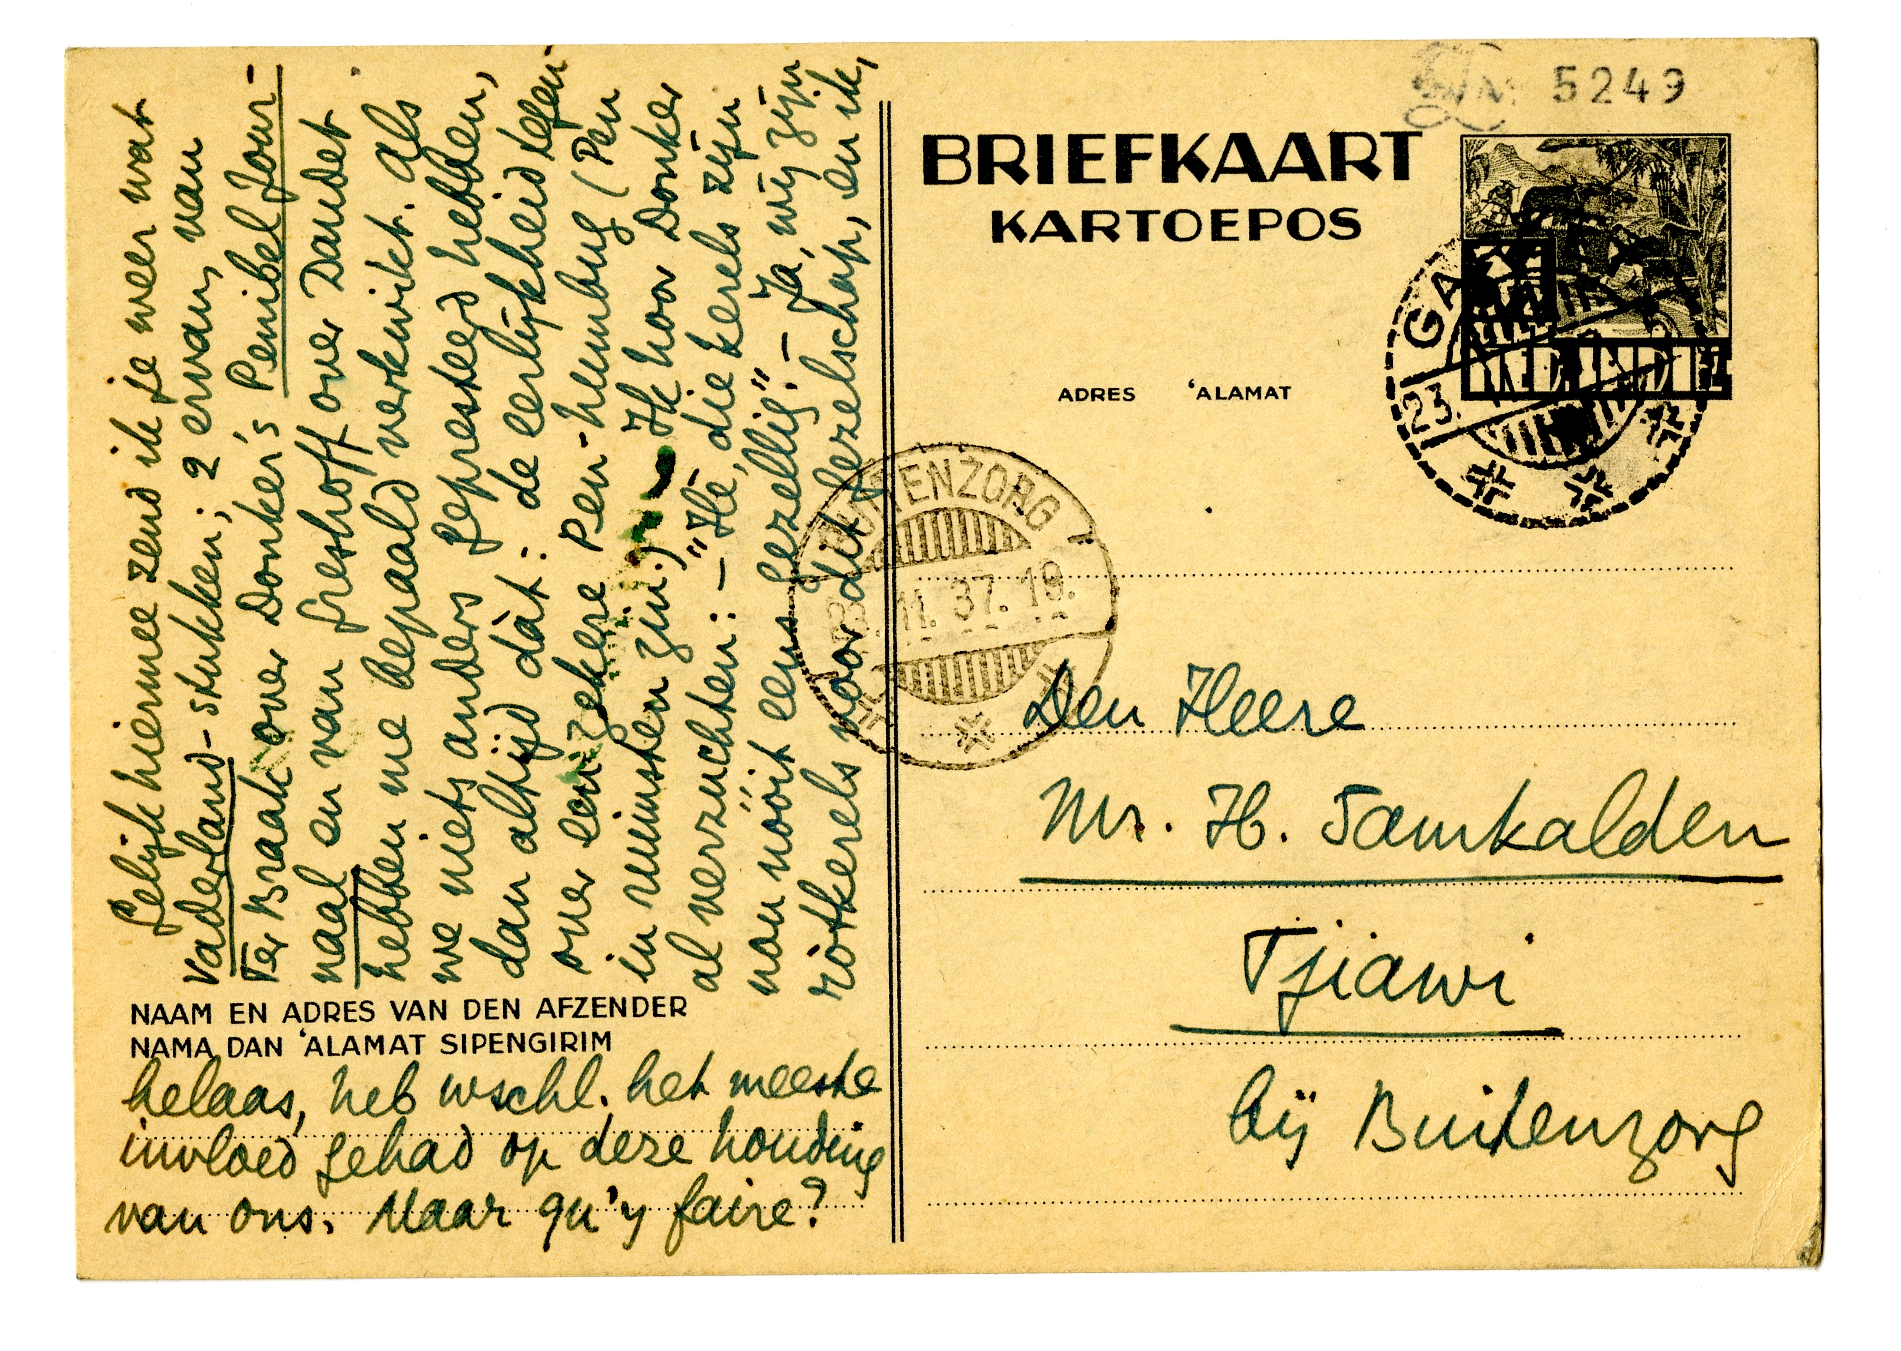 Gelijk hiermee zend ik je weer wat
vaderland-stukken; 2 ervan, van
Ter Braak over Donker's Penibel Jour-
naal en van Greshoff over Daudet
hebben me bepaald verkwikt. Als
we niets anders gepresteerd hebben,
dan altijd dàt: de eerlijkheid tegen
over een zekere Pen-humbug (Pen
in minsten zin.) – Ik hoor Donker
al verzuchten: – "Hè, die kerels zijn
nou nóóit eens gezellig". – Ja, wij zijn
rotkerels voor dit gezelschap, en ik,
NAAM EN ADRES VAN DEN AFZENDER
NAMA DAN 'ALAMAT SIPENGIRIM
helaas, heb wschl. het meeste
invloed gehad op deze houding
van ons. Maar qu'y faire?
5249
BRIEFKAART
KARTOEPOS
ADRES 'ALAMAT
GA
23.
NED. INDIË
BUITENZORG
23.11.37.19.
Den Heere
Mr. H. Samkalden
Tjiawi
bij Buitenzorg